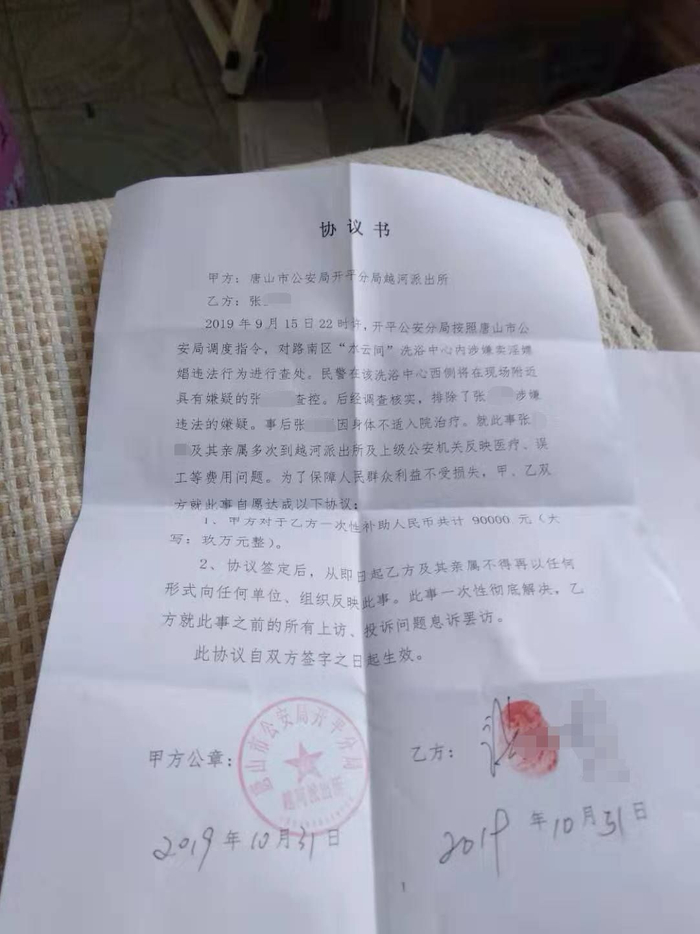 协议书
甲方：唐山市公安局开平分局越河派出所
乙方：张
2019年9月15日22时许，开平公安分局按照唐山市公
安局调度指令，对路南区“水云间”洗浴中心内涉嫌卖淫嫖
娼违法行为进行查处。民警在该洗浴中心西侧将在现场附近
具有嫌疑的张 查控。后经调查核实，排除了张 涉嫌
违法的嫌疑。事后张 因身体不适入院治疗。就此事张
及其亲属多次到越河派出所及上级公安机关反映医疗、误
工等费用问题。为了保障人民群众利益不受损失，甲、乙双
方就此事自愿达成以下协议：
1、甲方对于乙方一次性补助人民币共计 90000 元（大
写：玖万元整）。
2、协议签定后，从即日起乙方及其亲属不得再以任何
形式向任何单位、组织反映此事。此事一次性彻底解决，乙
方就此事之前的所有上访、投诉问题息诉罢访。
此协议自双方签字之日起生效。
甲方公章：
唐山市公安局开平分局
越河派出所
乙方：
张
2019年10月31日
2019年10月31日
1